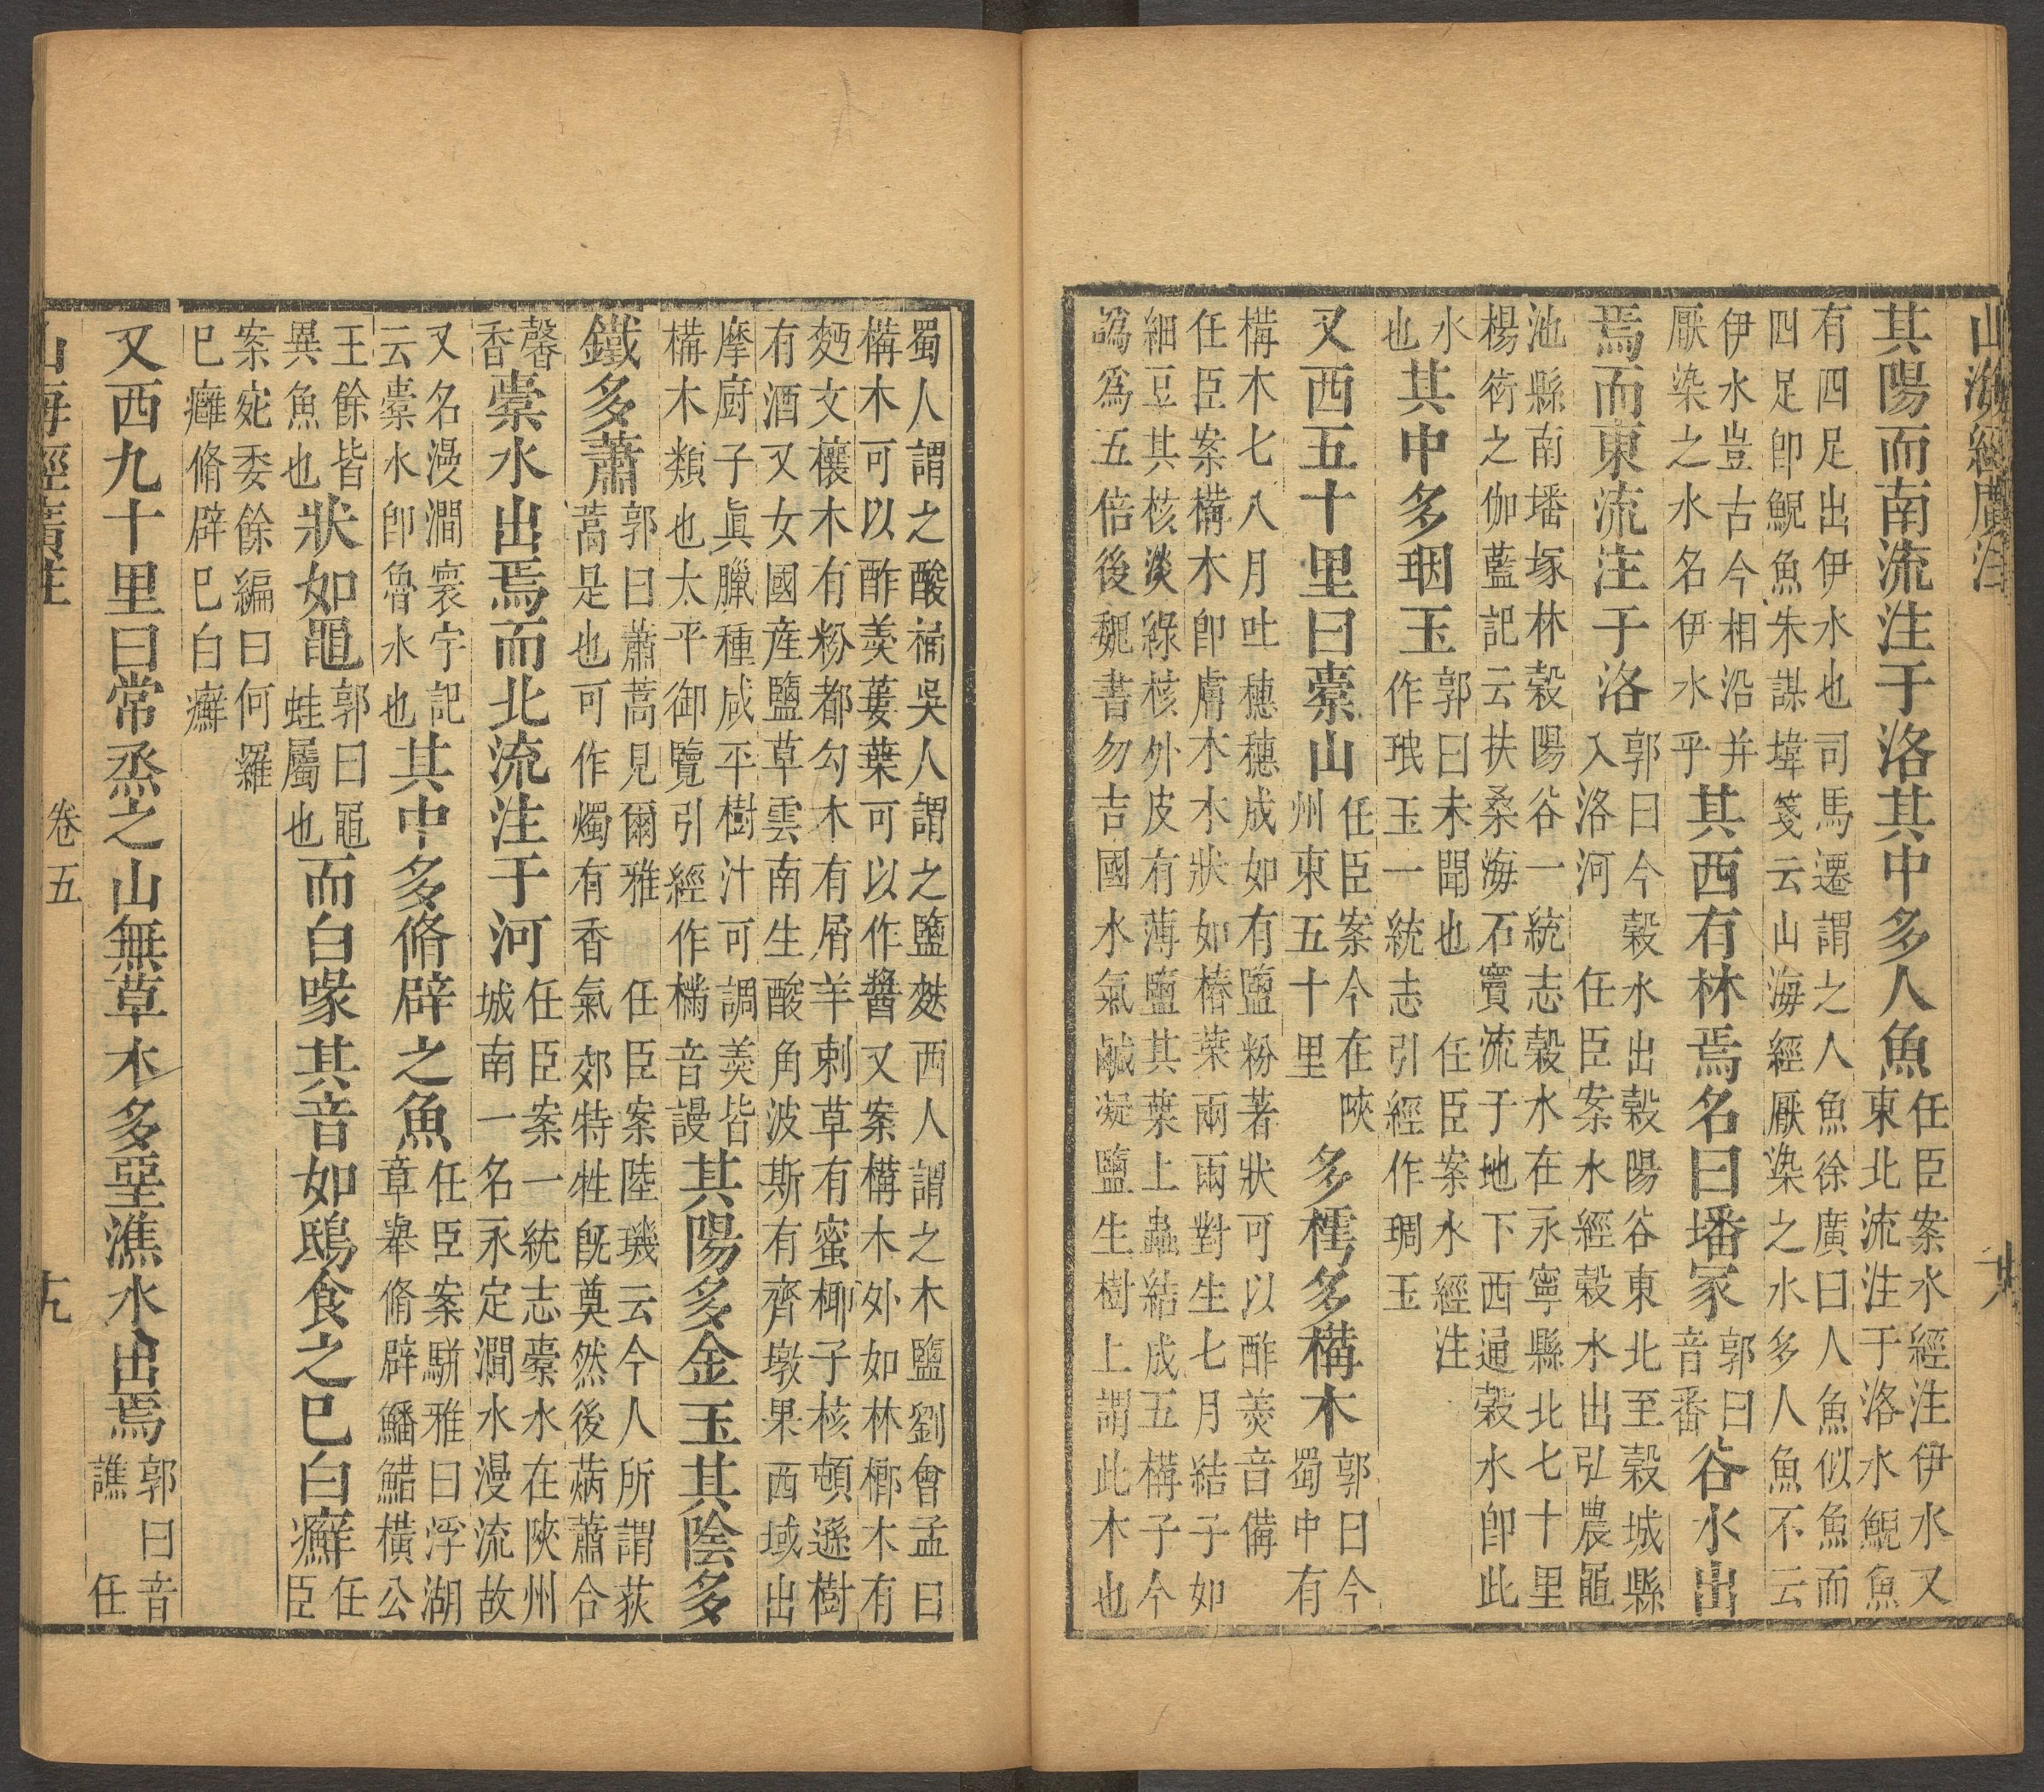 山海經廣注 十八
其陽而南流注于洛其中多人魚任臣案水經注伊水又
東北流注于洛水鯢魚
有四足出伊水也司馬遷謂之人魚徐廣曰人魚似魚而
四足即鯢魚朱謀㙔箋云山海經厭染之水多人魚不云
伊水豈古今相沿并
厭染之水名伊水乎其西有林焉名曰墦冢郭曰
音番谷水出
焉而東流注于洛郭曰今榖水出榖陽谷東北至榖城縣
入洛河 任臣案水經榖水出弘農黽
池縣南墦塚林榖陽谷一統志榖水在永寧縣北七十里
楊衒之伽藍記云扶桑海石竇流于地下西通榖水即此
水
也其中多珚玉郭曰未聞也 任臣案水經注
作珉玉一統志引經作琱玉
又西五十里曰橐山任臣案今在陝
州東五十里多樗多構木郭曰今
蜀中有
構木七八月吐穗穗成如有鹽粉著狀可以酢羙音備
任臣案構木即膚木木狀如椿葉兩兩對生七月結子如
細豆其核淡綠核外皮有薄鹽其葉上蟲結成五構子今
譌爲五倍後魏書勿吉國水氣鹹凝鹽生樹上謂此木也
蜀人謂之酸桶吳人謂之鹽麩西人謂之木鹽劉會孟曰
構木可以酢羙蔞葉可以作醬又案構木外如林榔木有
麪文欀木有粉都勾木有屑羊剌草有蜜椰子核頓遜樹
有酒又女國産鹽草雲南生酸角波斯有齊墩果西域出
摩厨子眞臘種咸平樹汁可調羙皆
構木類也太平御覽引經作樠音謾其陽多金玉其陰多
鐵多蕭郭曰蕭蒿見爾雅 任臣案陸璣云今人所謂荻
蒿是也可作燭有香氣郊特牲既奠然後焫蕭合
馨
香橐水出焉而北流注于河任臣案一統志橐水在陝州
城南一名永定澗水漫流故
又名漫澗寰宇記
云橐水即魯水也其中多脩辟之魚任臣案騈雅曰浮湖
章舉脩辟鱕䱜橫公
王餘皆
異魚也狀如黽郭曰黽
蛙屬也而白喙其音如鴟食之已白癬任
臣
案宛委餘編曰何羅
已癰脩辟已白癬
又西九十里曰常烝之山無草木多堊潐水出焉郭曰音
譙 任
山海經廣注 卷五 十九